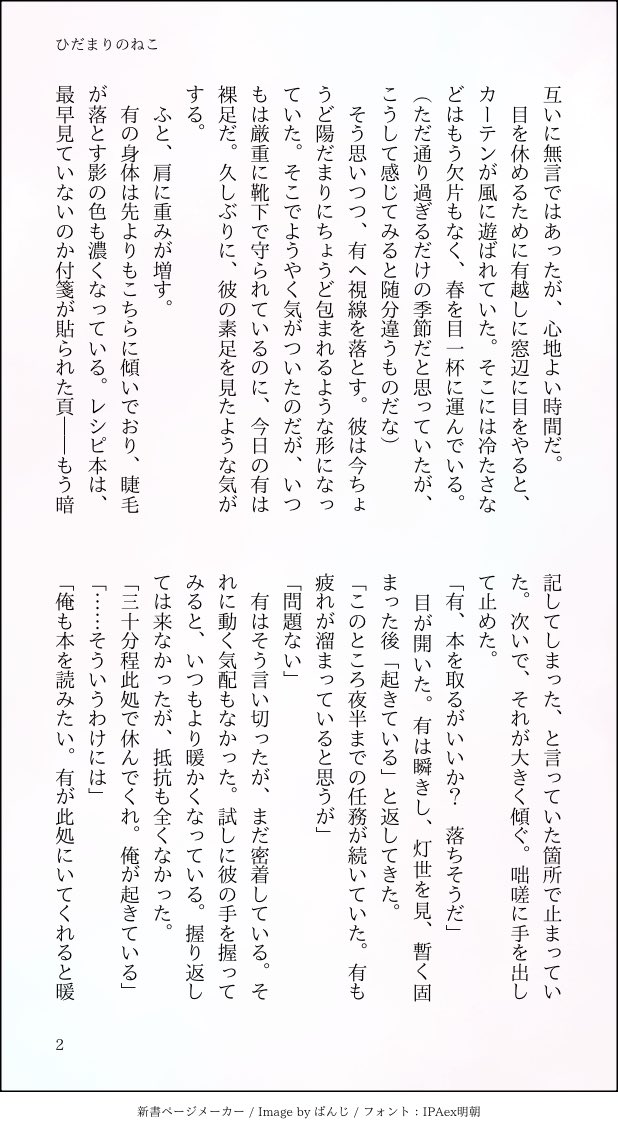 ひだまりのねこ
互いに無言ではあったが、心地よい時間だ。
　目を休めるために有越しに窓辺に目をやると、
カーテンが風に遊ばれていた。そこには冷たさな
どはもう欠片もなく、春を目一杯に運んでいる。
（ただ通り過ぎるだけの季節だと思っていたが、
こうして感じてみると随分違うものだな）
　そう思いつつ、有へ視線を落とす。彼は今ちょ
うど陽だまりにちょうど包まれるような形になっ
ていた。そこでようやく気がついたのだが、いつ
もは厳重に靴下で守られているのに、今日の有は
裸足だ。久しぶりに、彼の素足を見たような気が
する。
　ふと、肩に重みが増す。
　有の身体は先よりもこちらに傾いでおり、睫毛
が落とす影の色も濃くなっている。レシピ本は、
最早見ていないのか付箋が貼られた頁――もう暗
記してしまった、と言っていた箇所で止まってい
た。次いで、それが大きく傾ぐ。咄嗟に手を出し
て止めた。
「有、本を取るがいいか？　落ちそうだ」
　目が開いた。有は瞬きし、灯世を見、暫く固
まった後「起きている」と返してきた。
「このところ夜半までの任務が続いていた。有も
疲れが溜まっていると思うが」
「問題ない」
　有はそう言い切ったが、まだ密着している。そ
れに動く気配もなかった。試しに彼の手を握って
みると、いつもより暖かくなっている。握り返し
ては来なかったが、抵抗も全くなかった。
「三十分程此処で休んでくれ。俺が起きている」
「……そういうわけには」
「俺も本を読みたい。有が此処にいてくれると暖
2
新書ページメーカー / Image by ぱんじ / フォント：IPAex明朝